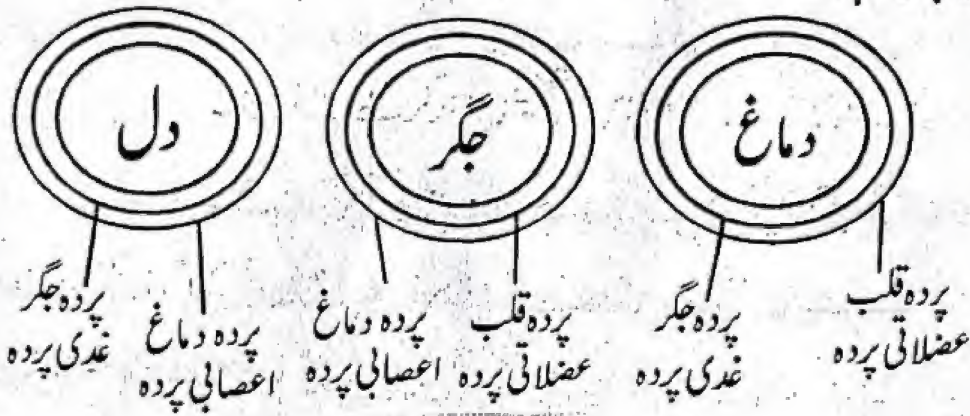 دماغ
جگر
دل
پردہ قلب
عضلاتی پردہ
پردہ جگر
غدی پردہ
پردہ قلب
عضلاتی پردہ
پردہ دماغ
اعصابی پردہ
پردہ دماغ
اعصابی پردہ
پردہ جگر
غدی پردہ